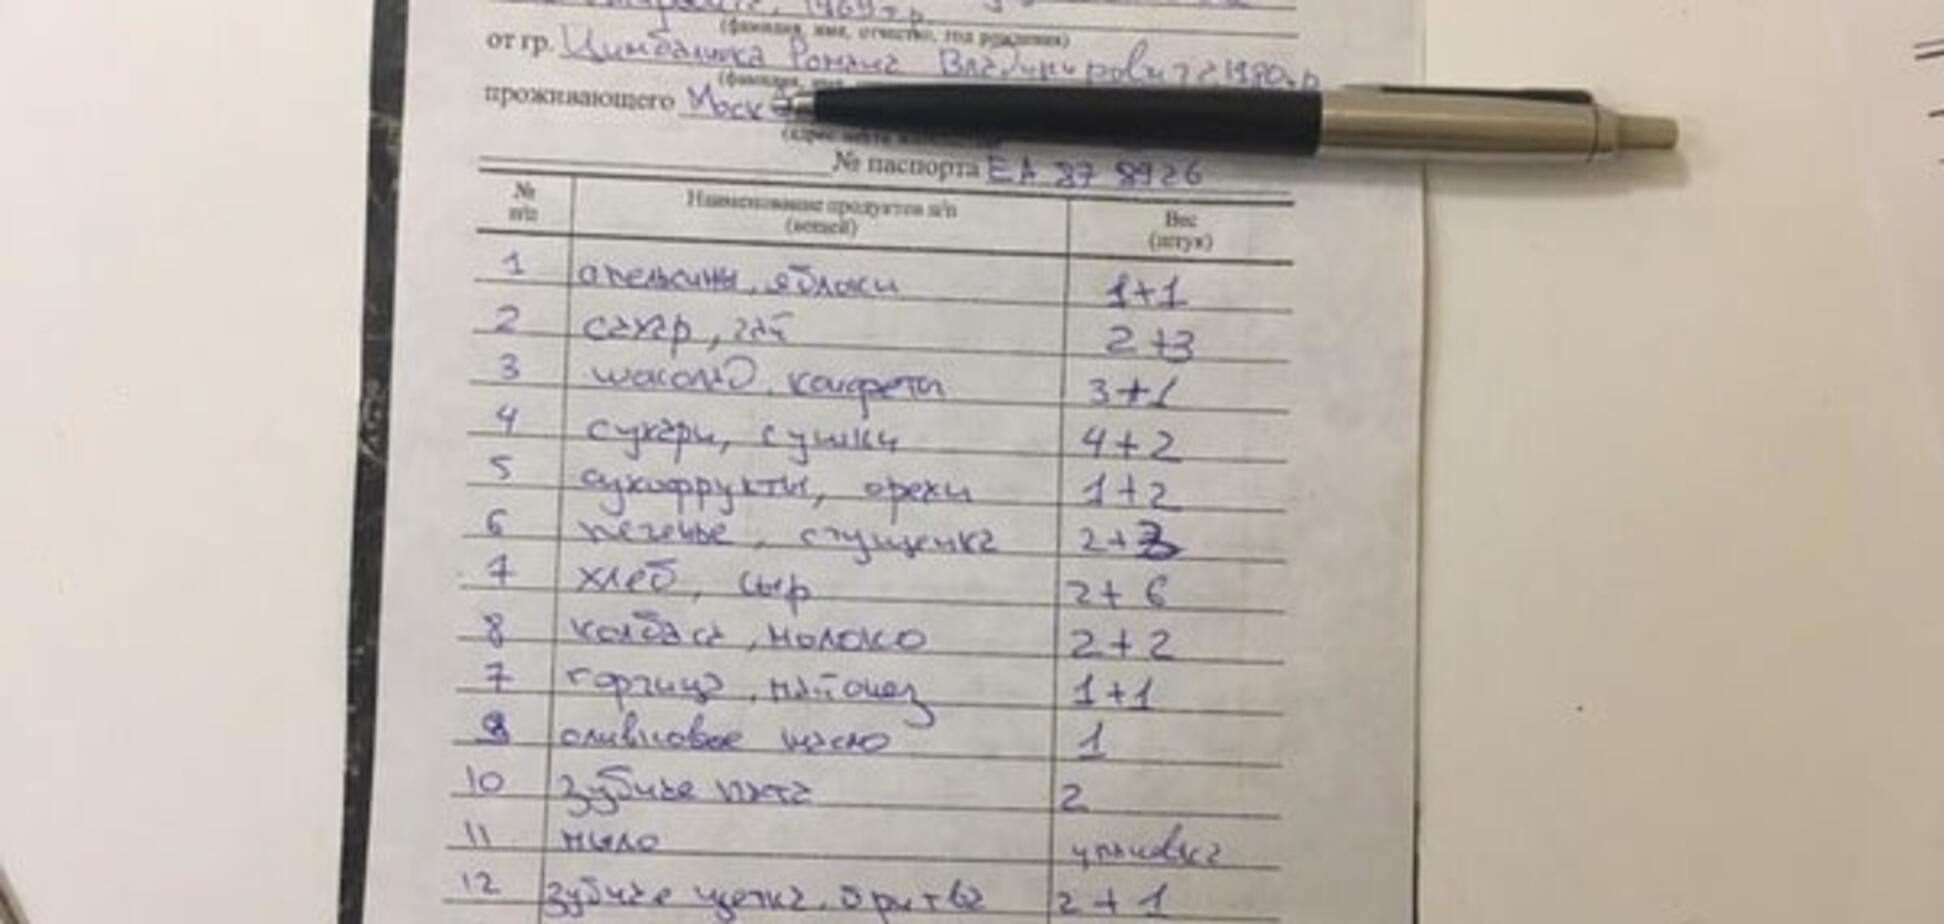 1969 г.р.
(фамилия, имя, отчество, год рождения)
от гр. Цимбалюка Романа Владимировича 1980 г.р
(фамилия, имя
проживающего Моск
(адрес места
№ паспорта ЕА 87 8926
№ п/п Наименование продуктов п/п (вещей) Вес (штук)
1 апельсины, яблоки 1+1
2 сахар, чай 2+3
3 шасолад, конфеты 3+1
4 сухари, сушки 4+2
5 сухофрукты, орехи 1+2
6 печенье, сгущенка 2+3
7 хлеб, сыр 2+6
8 колбаса, молоко 2+2
7 горчица, майонез 1+1
9 оливковое масло 1
10 зубная паста 2
11 мыло упаковка
12 зубная щетка, бритва 2+1